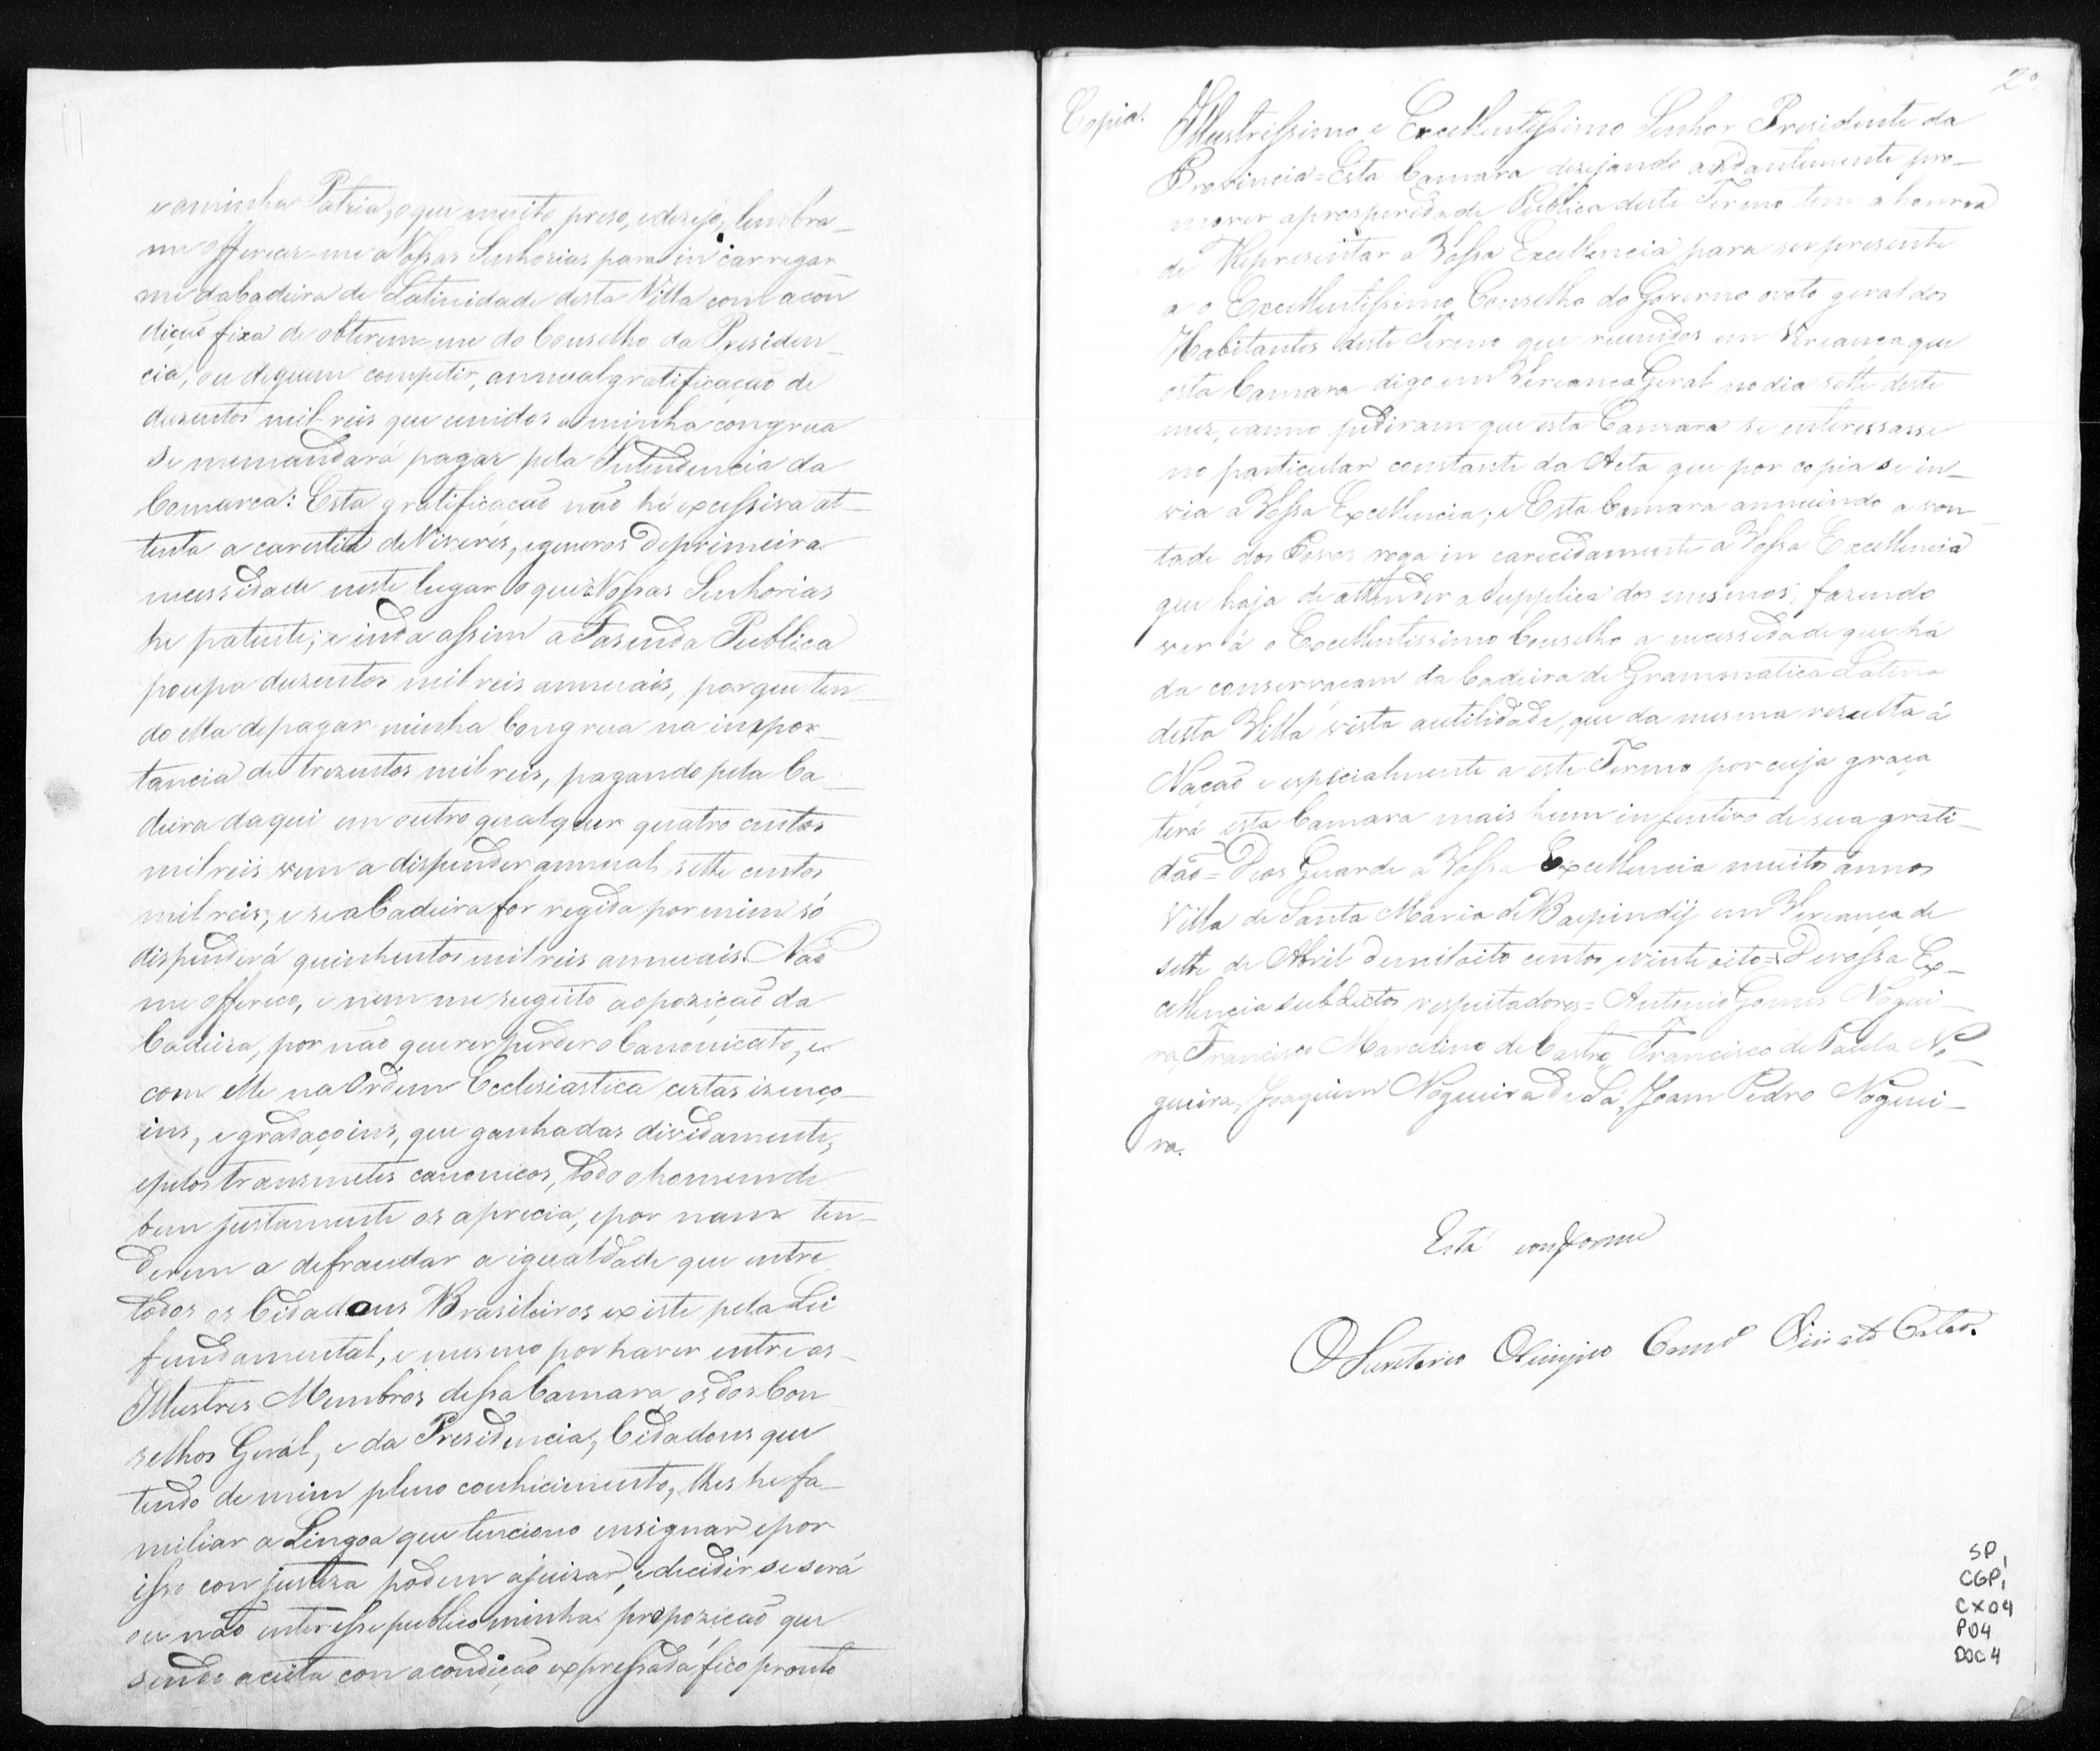 e aminha Patria, oque muito preso, e desejo, lembra-
me Offerecer-me a Vossas Senhorias para in carregar-
me da Cadeira de Latinidade desta Villa com acon
dição fixa de obterem-me do Conselho da Presiden-
cia, ou dequem competir, annual gratificação de
duzentos mil reis que unidos a minha congrua
se me mandará pagar pela Intendencia da
Comarca: Esta gratificação não hé excessiva at-
tenta a carestia de Viveres, e generos de primeira
necessidade neste lugar o que á Vossas Senhorias
he patente; e inda assim a Fasenda Publica
poupa duzentos mil reis annuais, porque ten-
do ella de pagar minha Congrua na inpor-
tancia de trezentos mil reis, pagando pela Ca-
deira daqui em outro qualquer quatro centos
mil reis vem a dispender annual sette centos
mil reis; e se a Cadeira for regida por mim só
dispenderá quinhentos mil reis annuais. Não
me offereço, e nem me sugeito a opozição da
Cadeira, por não querer perder o Canonicato, e
com elle na Ordem Ecclesiastica certas izenço-
ins, e gradaçoins, que ganhadas dividamente,
e pelos transmetes canonicos, todo o homem de
bem justamente os aprecia, e por nam ten-
derem a defraudar a igualdade que entre
todos os Cidadons Brasileiros existe pela Lei
fundamental, e mesmo por haver entre as
Illustres Membros dessa Camara, os dos Con
selhos Gerál, e da Presidencia, Cidadons que
tendo de mim pleno conhicimento, lhes he fa-
miliar a Lingoa que tenciono ensignar e por
isso con justiza podem ajuizar, e decidir se será
ou não interesse publico minha propozição que
sendo aceita con a condição expressada fico pronto
2º
Copia. Illustrissimo e Excellentissimo Senhor Presidente da
Provincia = Esta Camara desejando ardantemente pro-
mover aprosperidade Publica deste Termo tem a honrra
de Representar a Vossa Excellencia para ser presente
a o Excellentissimo Conselho do Governo ovoto geral dos
Habitantes deste Termo que reunidos em Vereança que
esta Camara digo em Vereança Geral no dia sette deste
mez, e anno pediram que esta Camara se enteressasse
no particular constante da Acta que por copia se in-
via a Vossa Excellencia; e Esta Camara annuindo a von-
tade dos Povos roga in carecidamente a Vossa Excellencia
que haja de attender a supplica dos mesmos; fazendo
ver á o Excellentissimo Conselho a necessidade que há
da conservacam da Cadeira de Grammatica Latina
desta Villa vista autilidade, que da mesma rezulta á
Nação e especialmente a este Termo por cuja graça
terá esta Camara mais hum insentivo de sua grati-
dão = Deos Guarde a Vossa Excellencia muitos annos
Villa de Santa Maria de Baependÿ em Vereança de
sette de Abril de mil oito centos e vinte oito = De vossa Ex-
cellencia subdictos respeitadores = Antonio Gomes Noguei-
ra, Francisco Marcelino de Castro, Francisco de Paula No-
gueira, Joaquim Nogueira de Sá, Joam Pedro Noguei-
ra.
Está conforme
O Secretario Olimpio
SP,
CGP,
CX04
P04
DOC 4